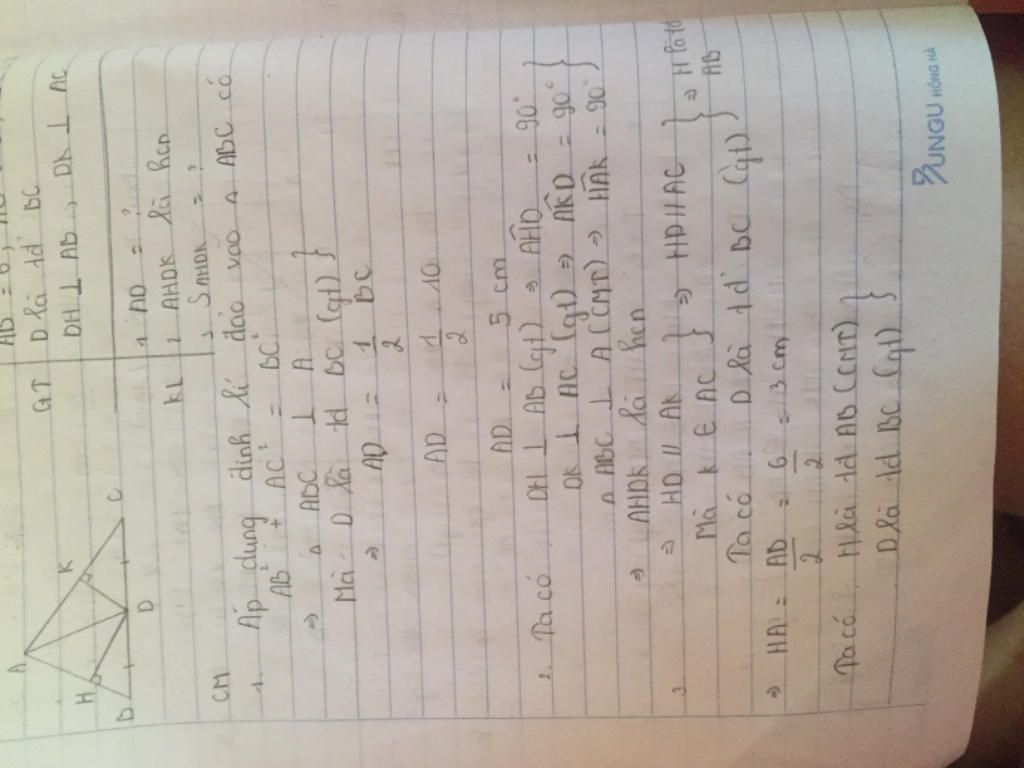 A
H
K
B
D
C
GT
AB = 6, AC
D là tđ BC
DH ⊥ AB, DK ⊥ AC
KL
1. AD = ?
2. AHDK là hcn
3. S AHDK = ?
CM
1. Áp dụng định lí đảo vào △ ABC có
AB² + AC² = BC²
⇒ △ ABC ⊥ A }
Mà D là tđ BC (gt) }
⇒ AD = 1/2 BC
AD = 1/2 . 10
AD = 5 cm
2. Ta có DH ⊥ AB (gt) ⇒ AĤD = 90° }
DK ⊥ AC (gt) ⇒ AK̂D = 90° }
△ ABC ⊥ A (CMT) ⇒ HÂK = 90° }
⇒ AHDK là hcn
3. ⇒ HD // AK } ⇒ HD // AC } ⇒ H là tđ AB
Mà K ∈ AC }
Ta có D là tđ BC (gt) }
⇒ HA = AD/2 = 6/2 = 3 cm
Ta có H là tđ AB (CMT) }
D là tđ BC (gt) }
PUNGU HỒNG HÀ